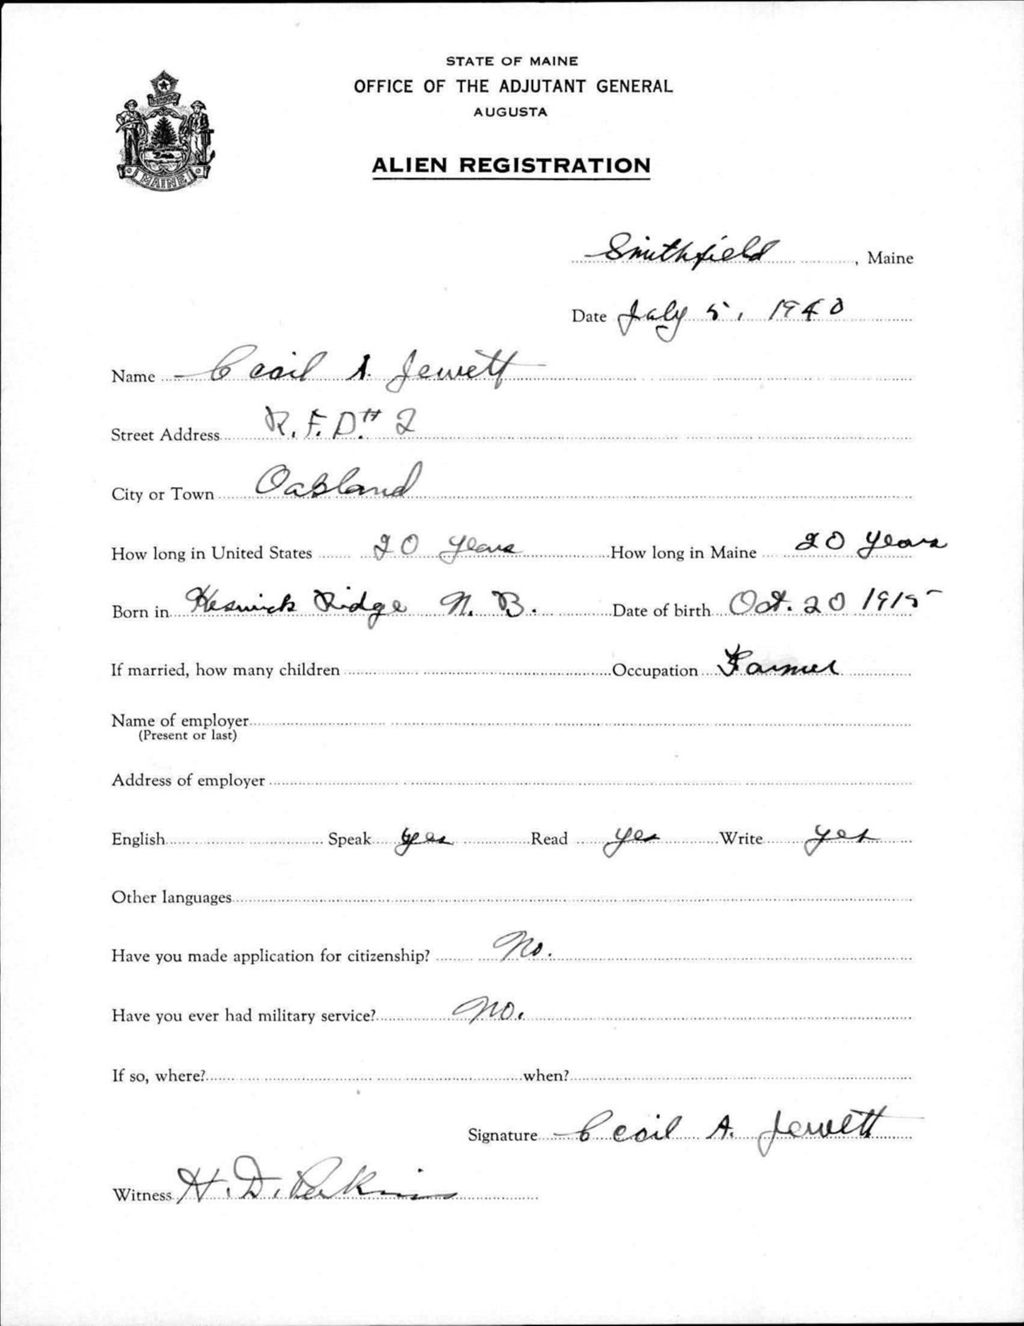 STATE OF MAINE
OFFICE OF THE ADJUTANT GENERAL
AUGUSTA
ALIEN REGISTRATION
MAINE
Smithfield, Maine
Date July 5, 1940
Name Cecil A. Jewett
Street Address R.F.D.# 2
City or Town Oakland
How long in United States 20 years How long in Maine 20 years
Born in Keswick Ridge N. B. Date of birth Oct. 20 1915
If married, how many children Occupation Farmer
Name of employer
(Present or last)
Address of employer
English Speak yes Read yes Write yes
Other languages
Have you made application for citizenship? No.
Have you ever had military service? No.
If so, where? when?
Signature Cecil A. Jewett
Witness H. D. Perkins